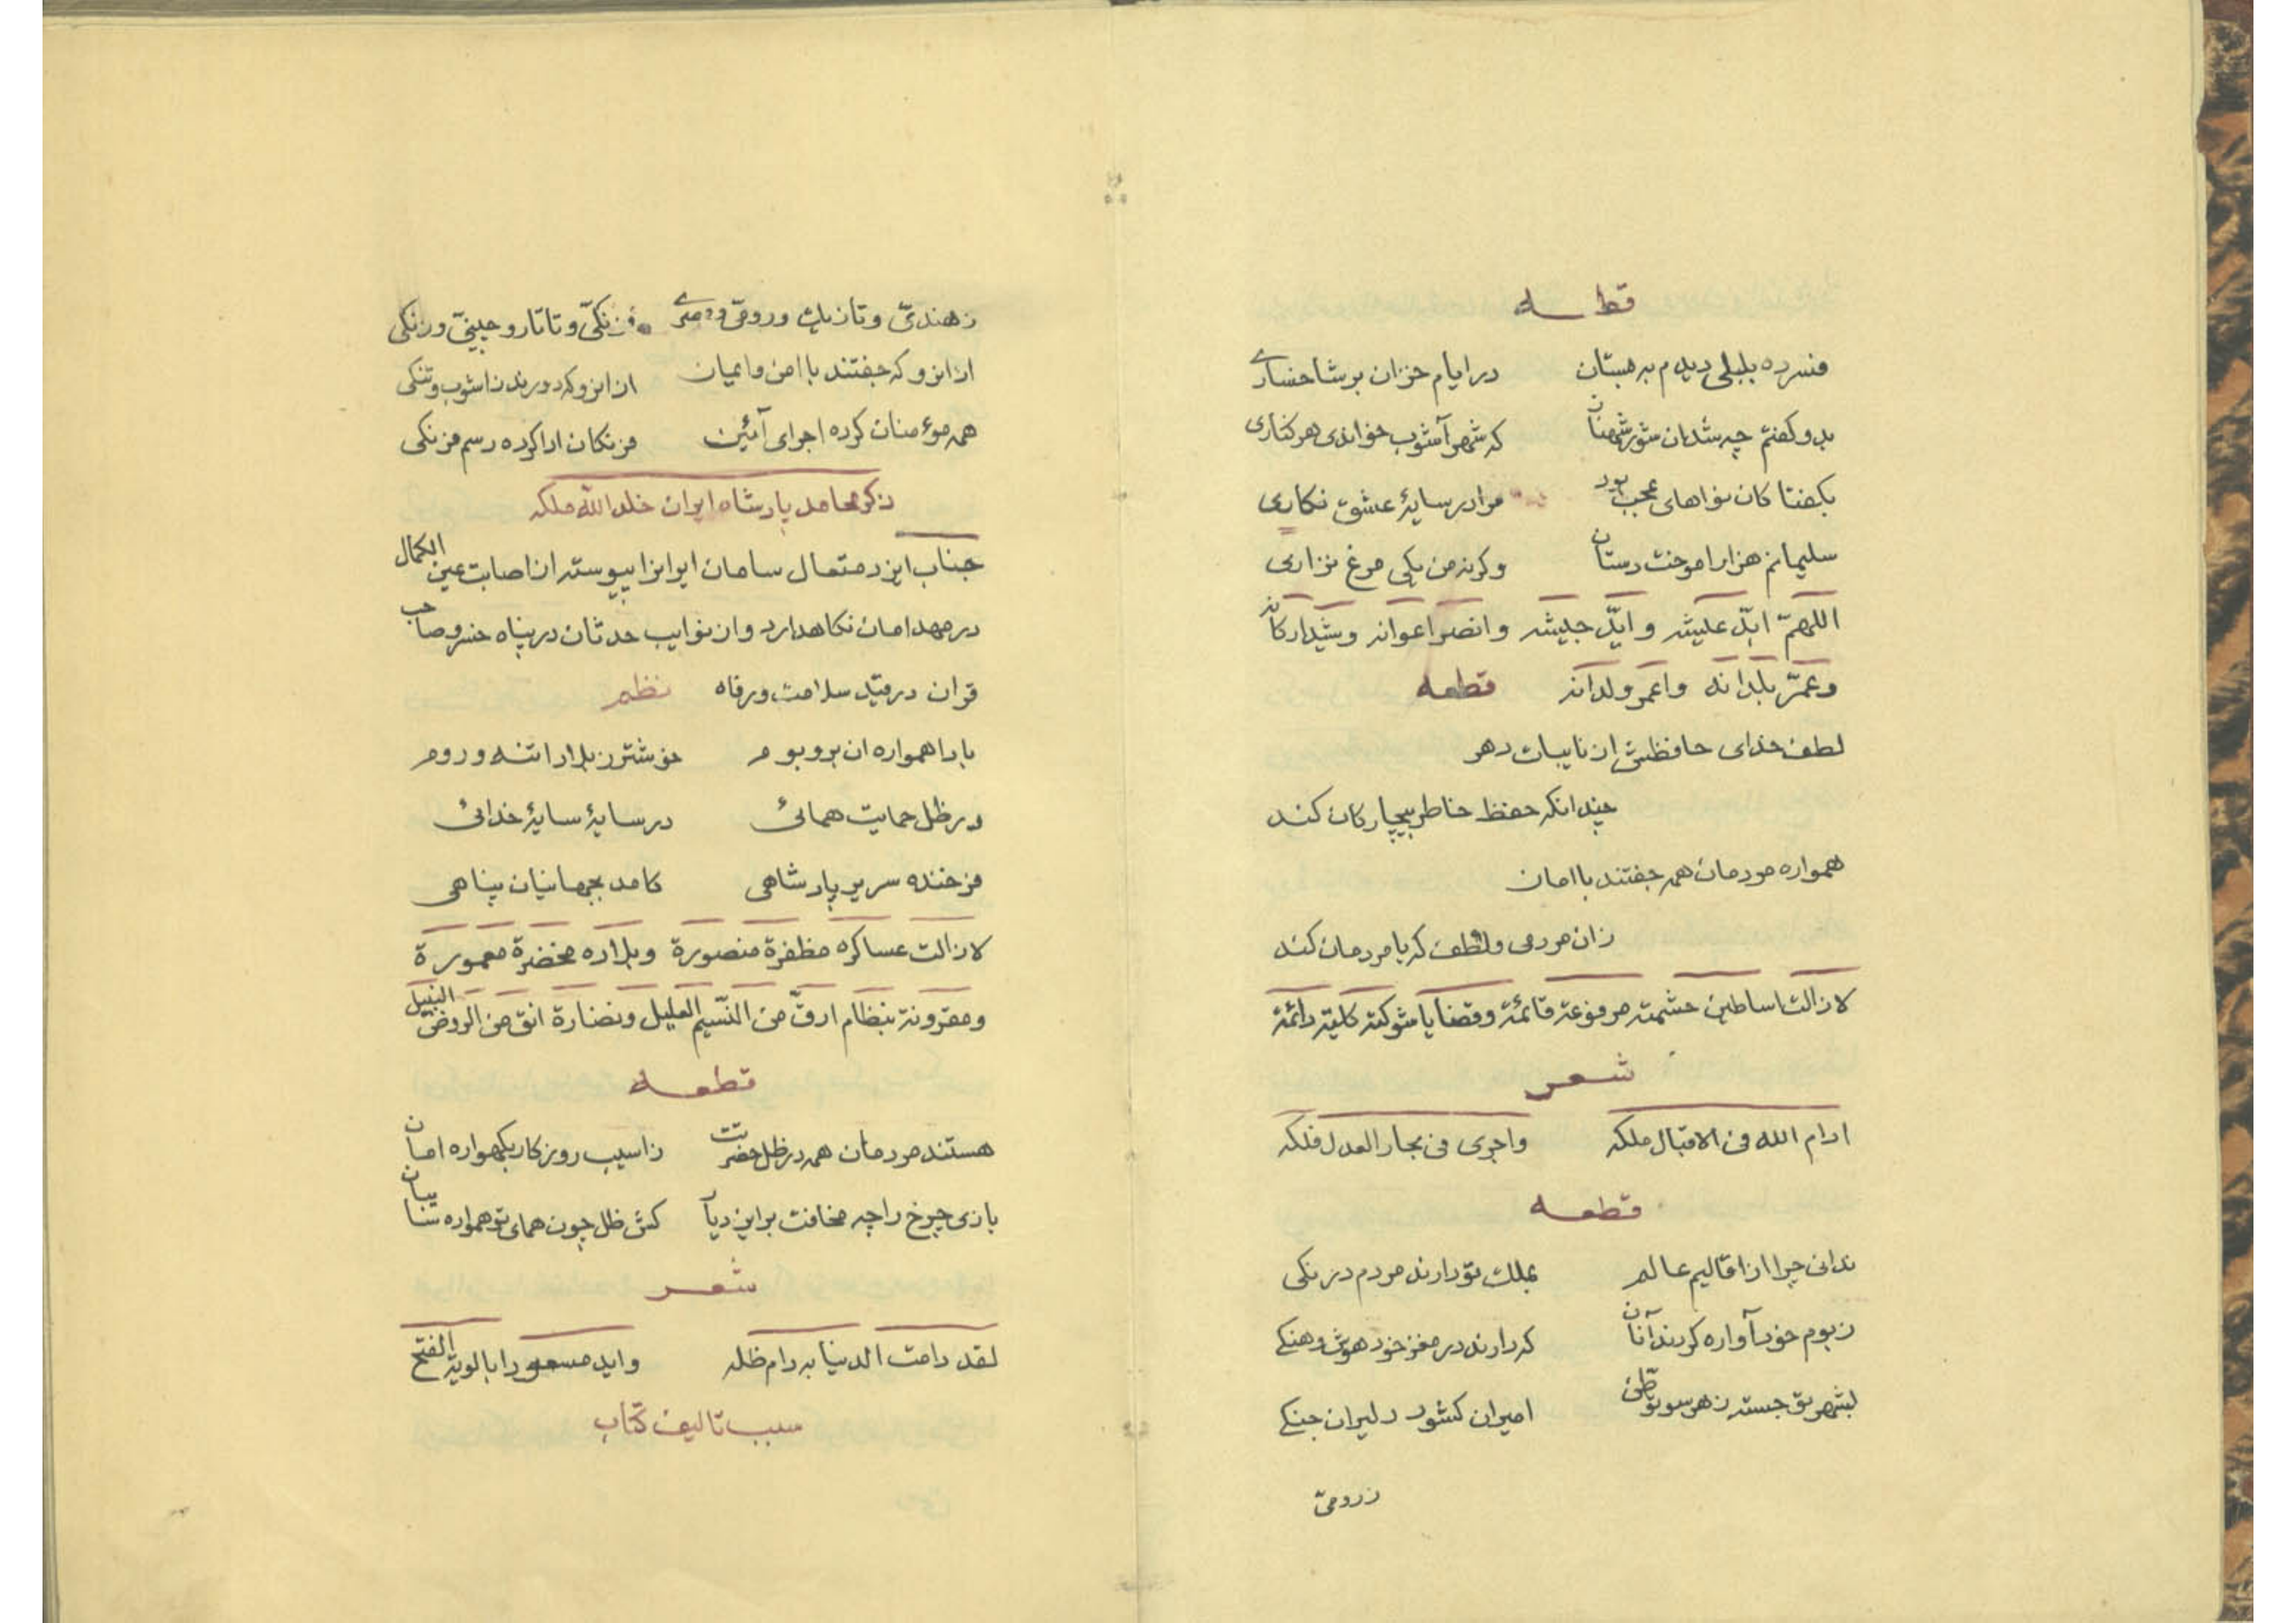 قطعه
فسرده بلبلی دیدم به بستان در ایام خزان بر شاخساری
بدو گفتم چه شد ان شور شهنان که شهر آشوب خواندی هر کناری
بگفتا کان نواهای عجب بود مرا در سایهٔ عشق نگاری
سلیمانم هزار اموخت دستان وگرنه من یکی مرغ نزاری
اللهمّ ابّد عیشه و ایّد جیشه وانصر اعوانه وشیّد ارکانه
وعمّر بلدانه واعمر ولدانه قطعه
لطف خدای حافظش از نایبات دهر
چندانکه حفظ خاطر بیچارکان کند
همواره مردمان همه جفتند با امان
زان مردمی ولطف که با مردمان کند
لازالت اساطین حشمته مرفوعة قائمة وقضایا شوکته کلیّة دائمة
شعر
ادام الله فی الاقبال ملکه واجری فی بحار العدل فلکه
قطعه
ندانی چرا از اقالیم عالم بملک تو دارند مردم درنکی
زبوم خود آواره کردند آنان که دارند در مغز خود هوش وهنکے
بشهر تو جسته زهر سو توطّن امیران کشور دلیران جنکے
زرومیّ
زهندیّ وتازیک ورومیّ و مصرے فرنکیّ وتاتار وچینیّ وزنکی
از انرو که جفتند با امن وایمان از انرو که دورند زاشوب وتنکی
همه مؤمنان کرده اجرای آئین فرنکان ادا کرده رسم فرنکی
ذکر محامد پادشاه ایران خلد الله ملکه
جناب ایزد متعال سامان ایرانرا پیوسته از اصابت عین الکمال
در مهد امان نکاهدارد واز نوایب حدثان در پناه خسرو صاحب
قران در قید سلامت ورفاه نظم
بادا همواره ان بر وبوم خوشتر ز بلاد اتنه وروم
در ظل حمایت همائی در سایهٔ سایهٔ خدائی
فرخنده سریر پادشاهی کامد بجهانیان پناهی
لازالت عساکره مظفرة منصورة وبلاده مخضرة معمورة
ومقرونة بنظام ارقّ من النّسیم العلیل ونضارة انق من الروض البلیل
قطعه
هستند مردمان همه در ظل حضرتت زاسیب روزکار بکهواره امان
بازی چرخ را چه مخافت بر این دیار کش ظل چون همای تو همواره شبان
شعر
لقد دامت الدنیا به دام ظله واید مسعودا بالویة الفتح
سبب تالیف کتاب